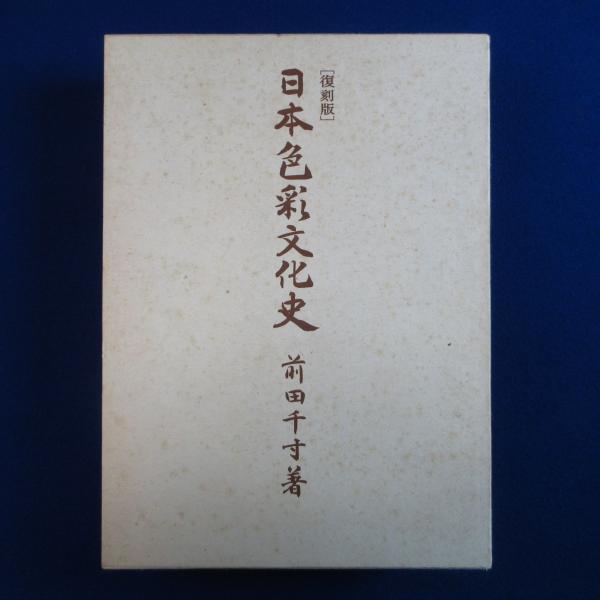 [復刻版]
日本色彩文化史
前田千寸著